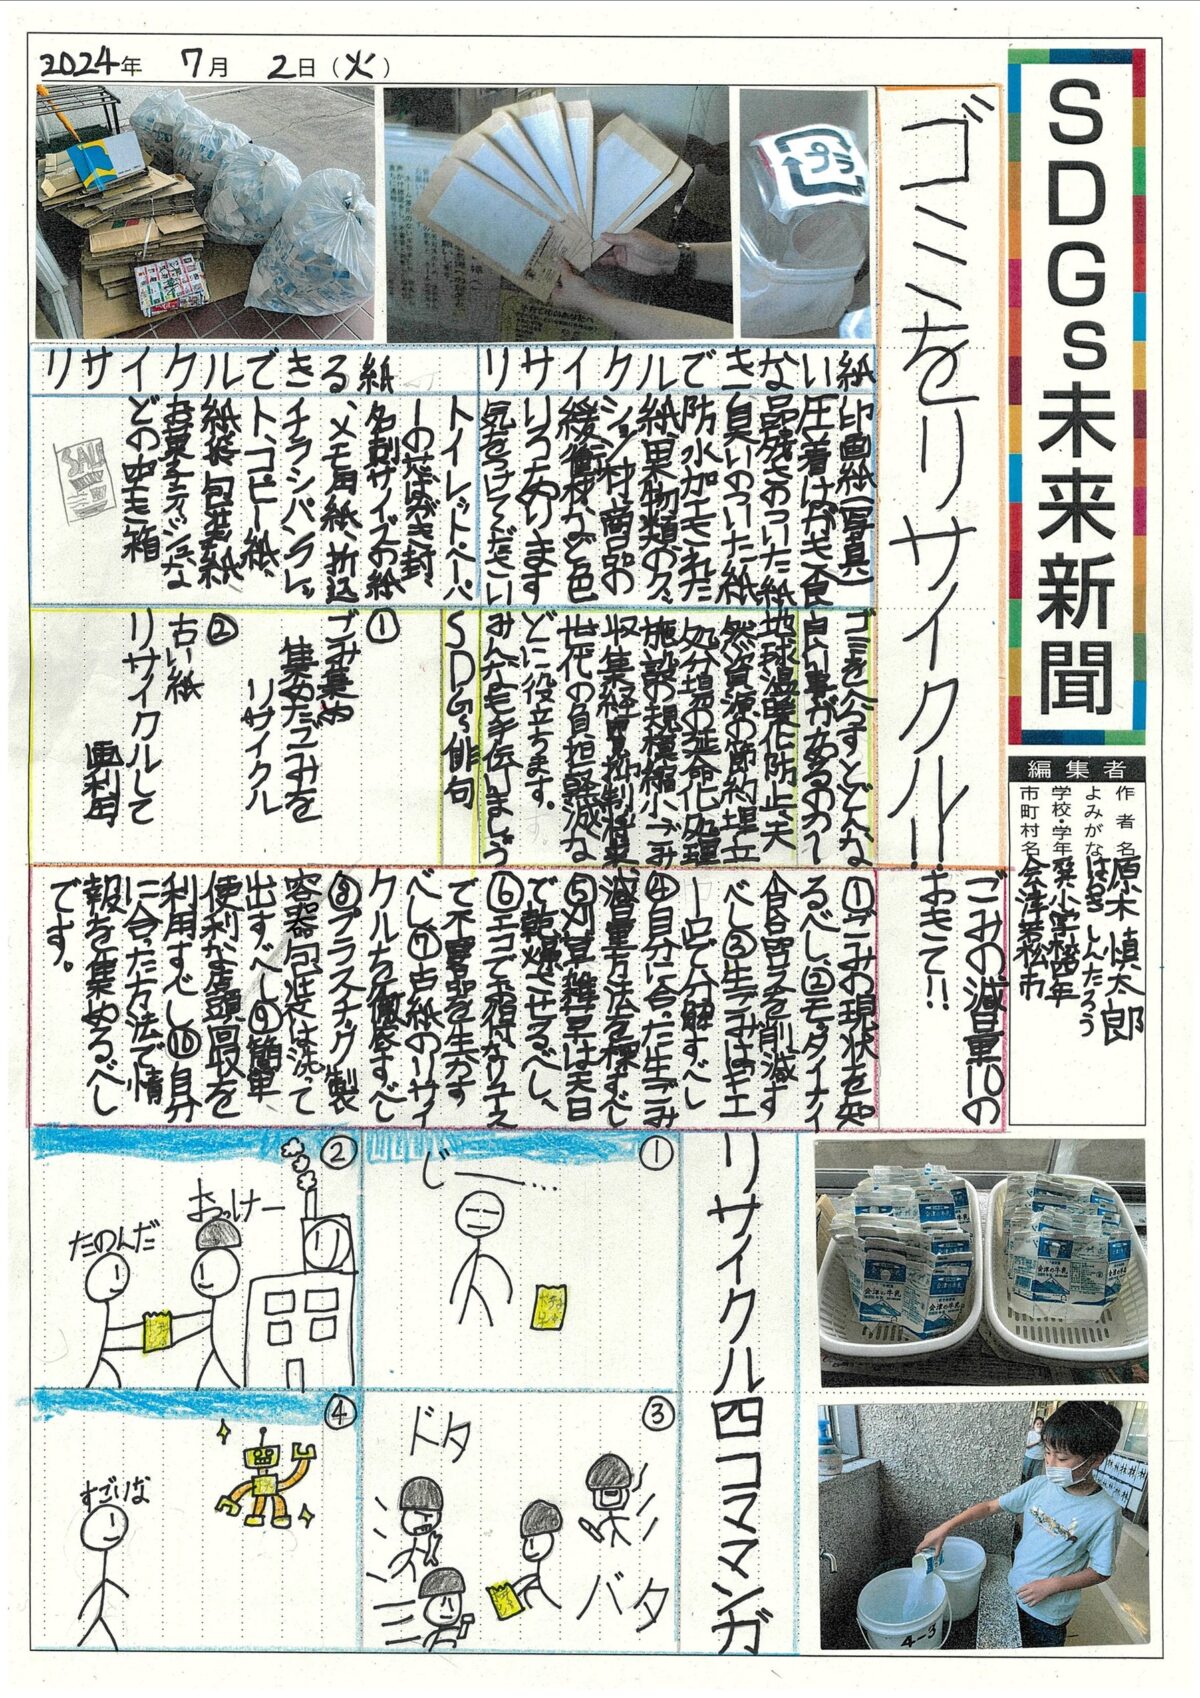 2024年 7月 2日(火)
SDGs未来新聞
編集者
作者名 原木慎太郎
よみがな はらき しんたろう
学校・学年 小学校四年
市町村名 会津若松市
ゴミをリサイクル!!
プラ
リサイクルできない紙
印画紙(写真)
圧着はがき、食
品残さのついた紙
臭いのついた紙
防水加工された
紙果物類のク
ション材、商品の
緩衝材など色
いろあります
気をつけてください
リサイクルできる紙
トイレットペーパ
ーのしん、はがき封、
名刺サイズの紙
、メモ用紙、折込
チラシパンフレッ
ト、コピー紙、
紙袋、包装紙
お菓子ティッシュな
どの空き箱
SALE
ゴミを分すとどんな
良い事があるの?
地球温暖化防止、天
然資源の節約埋立
処分場の延命化処理
施設の規模縮小ごみ
収集経費抑制将来
世代の負担軽減な
どに役立ちます。
みんなも手伝いましょう
SDGs俳句
①
ごみ集め
集めたごみを
リサイクル
②
古い紙
リサイクルして
再利用
ごみの減量10の
おきて!!
①ごみの現状を知
るべし、②モッタイナイ
食品ロスを削減す
べし③生ごみはキエ
ーロで分解すべし
④自分に合った生ごみ
減量方法を探すべし
⑤刈草、雑草は天日
で乾燥させるべし、
⑥エコで素材なリユース
で不要品を生かす
べし⑦古紙のリサイ
クルを徹底すべし
⑧プラスチック製
容器包装は洗って
出すべし⑨簡単
便利な店頭回収を
利用すべし⑩自分
に合った方法で情
報を集めるべし
です。
リサイクル四コママンガ
①
じー…
②
おっけー
たのんだ
リ
③
ドタ
バタ
④
すごいな
会津の牛乳
会津の牛乳
4-3